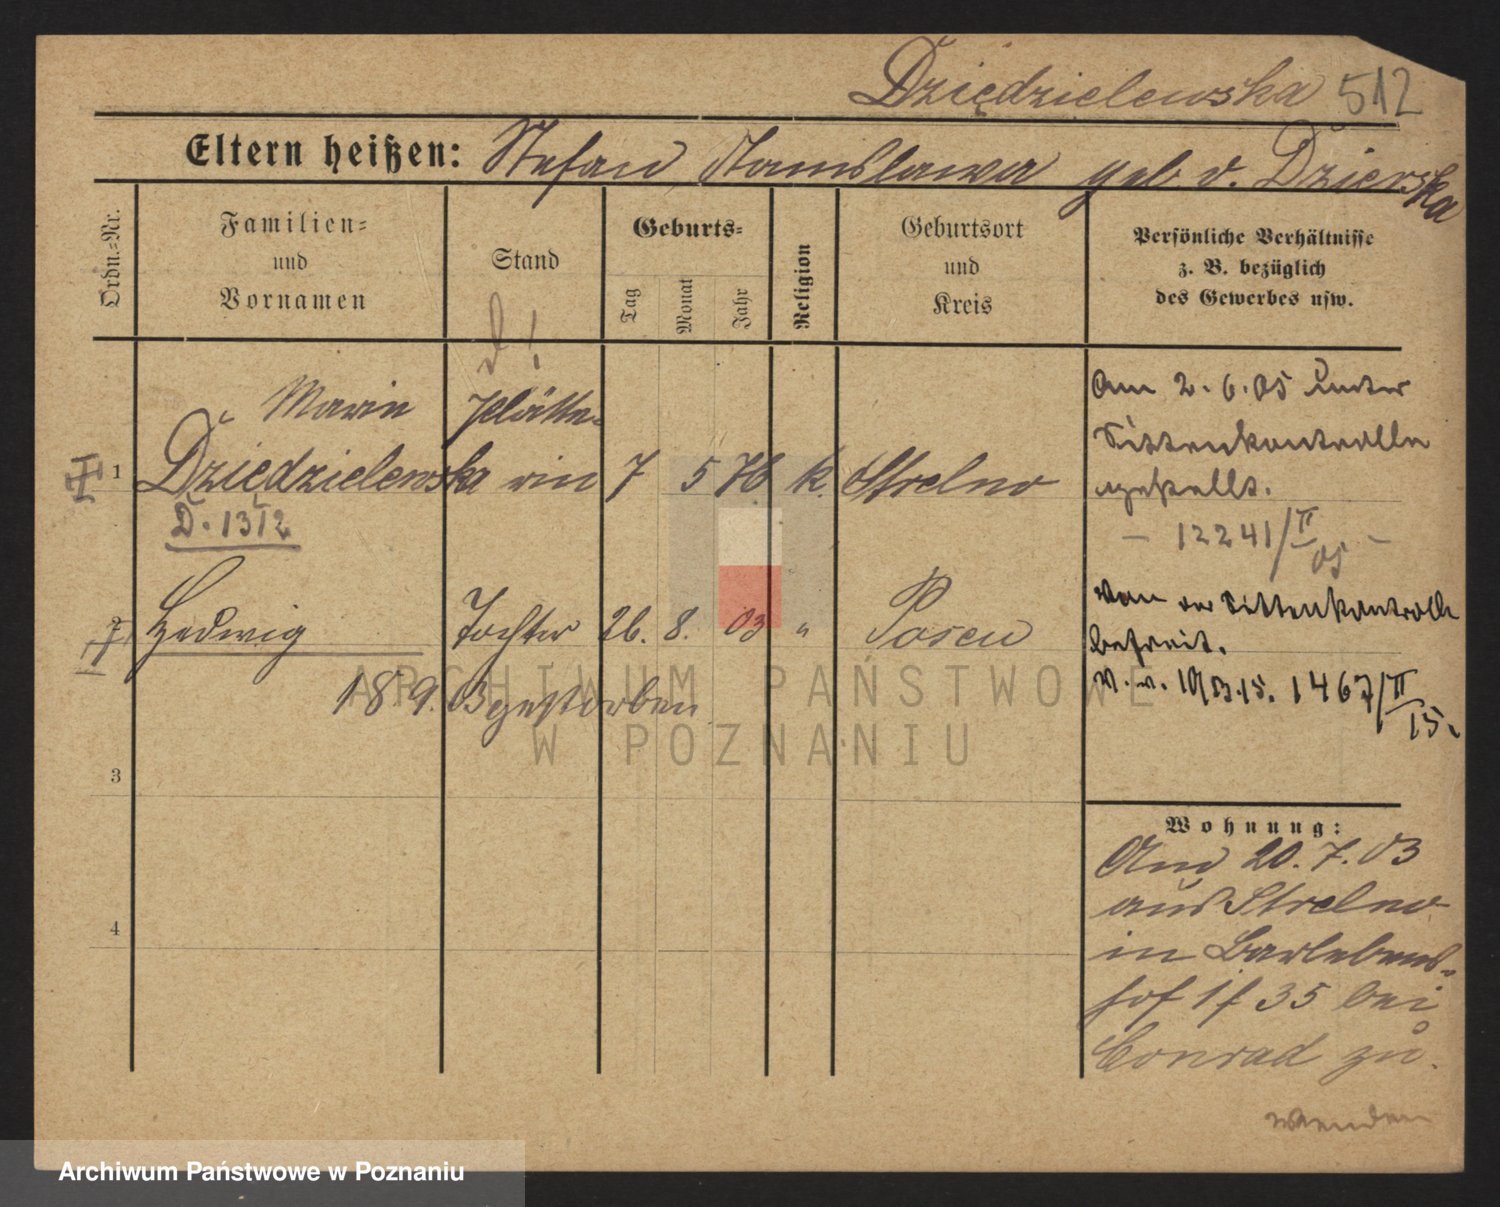 Dziędzielewska 512
Eltern heißen: Stefan, Stanislawa geb v. Dzierska
Ordn.-Nr.
Familien-
und
Vornamen
Stand
Geburts-
Tag
Monat
Jahr
Religion
Geburtsort
und
Kreis
Persönliche Verhältnisse
z. B. bezüglich
des Gewerbes usw.
D!
1
Marie
Dziędzielewska
Plätte-
rin
7 5 76 k. Strelno
D. 1312
Am 2.6.05 unter
Sittenkontrolle
gestellt.
- 12241/II 05 -
2
Hedwig Tochter 26. 8. 03 " Posen
18.9.03 gestorben
Von der Sittenkontrolle
befreit.
1467/II 15.
3
4
Wohnung:
Am 20.7.03
aus Strelno
in Barlebens-
hof 1 f 35 bei
Conrad zu.
wenden
ARCHIWUM PAŃSTWOWE
W POZNANIU
Archiwum Państwowe w Poznaniu